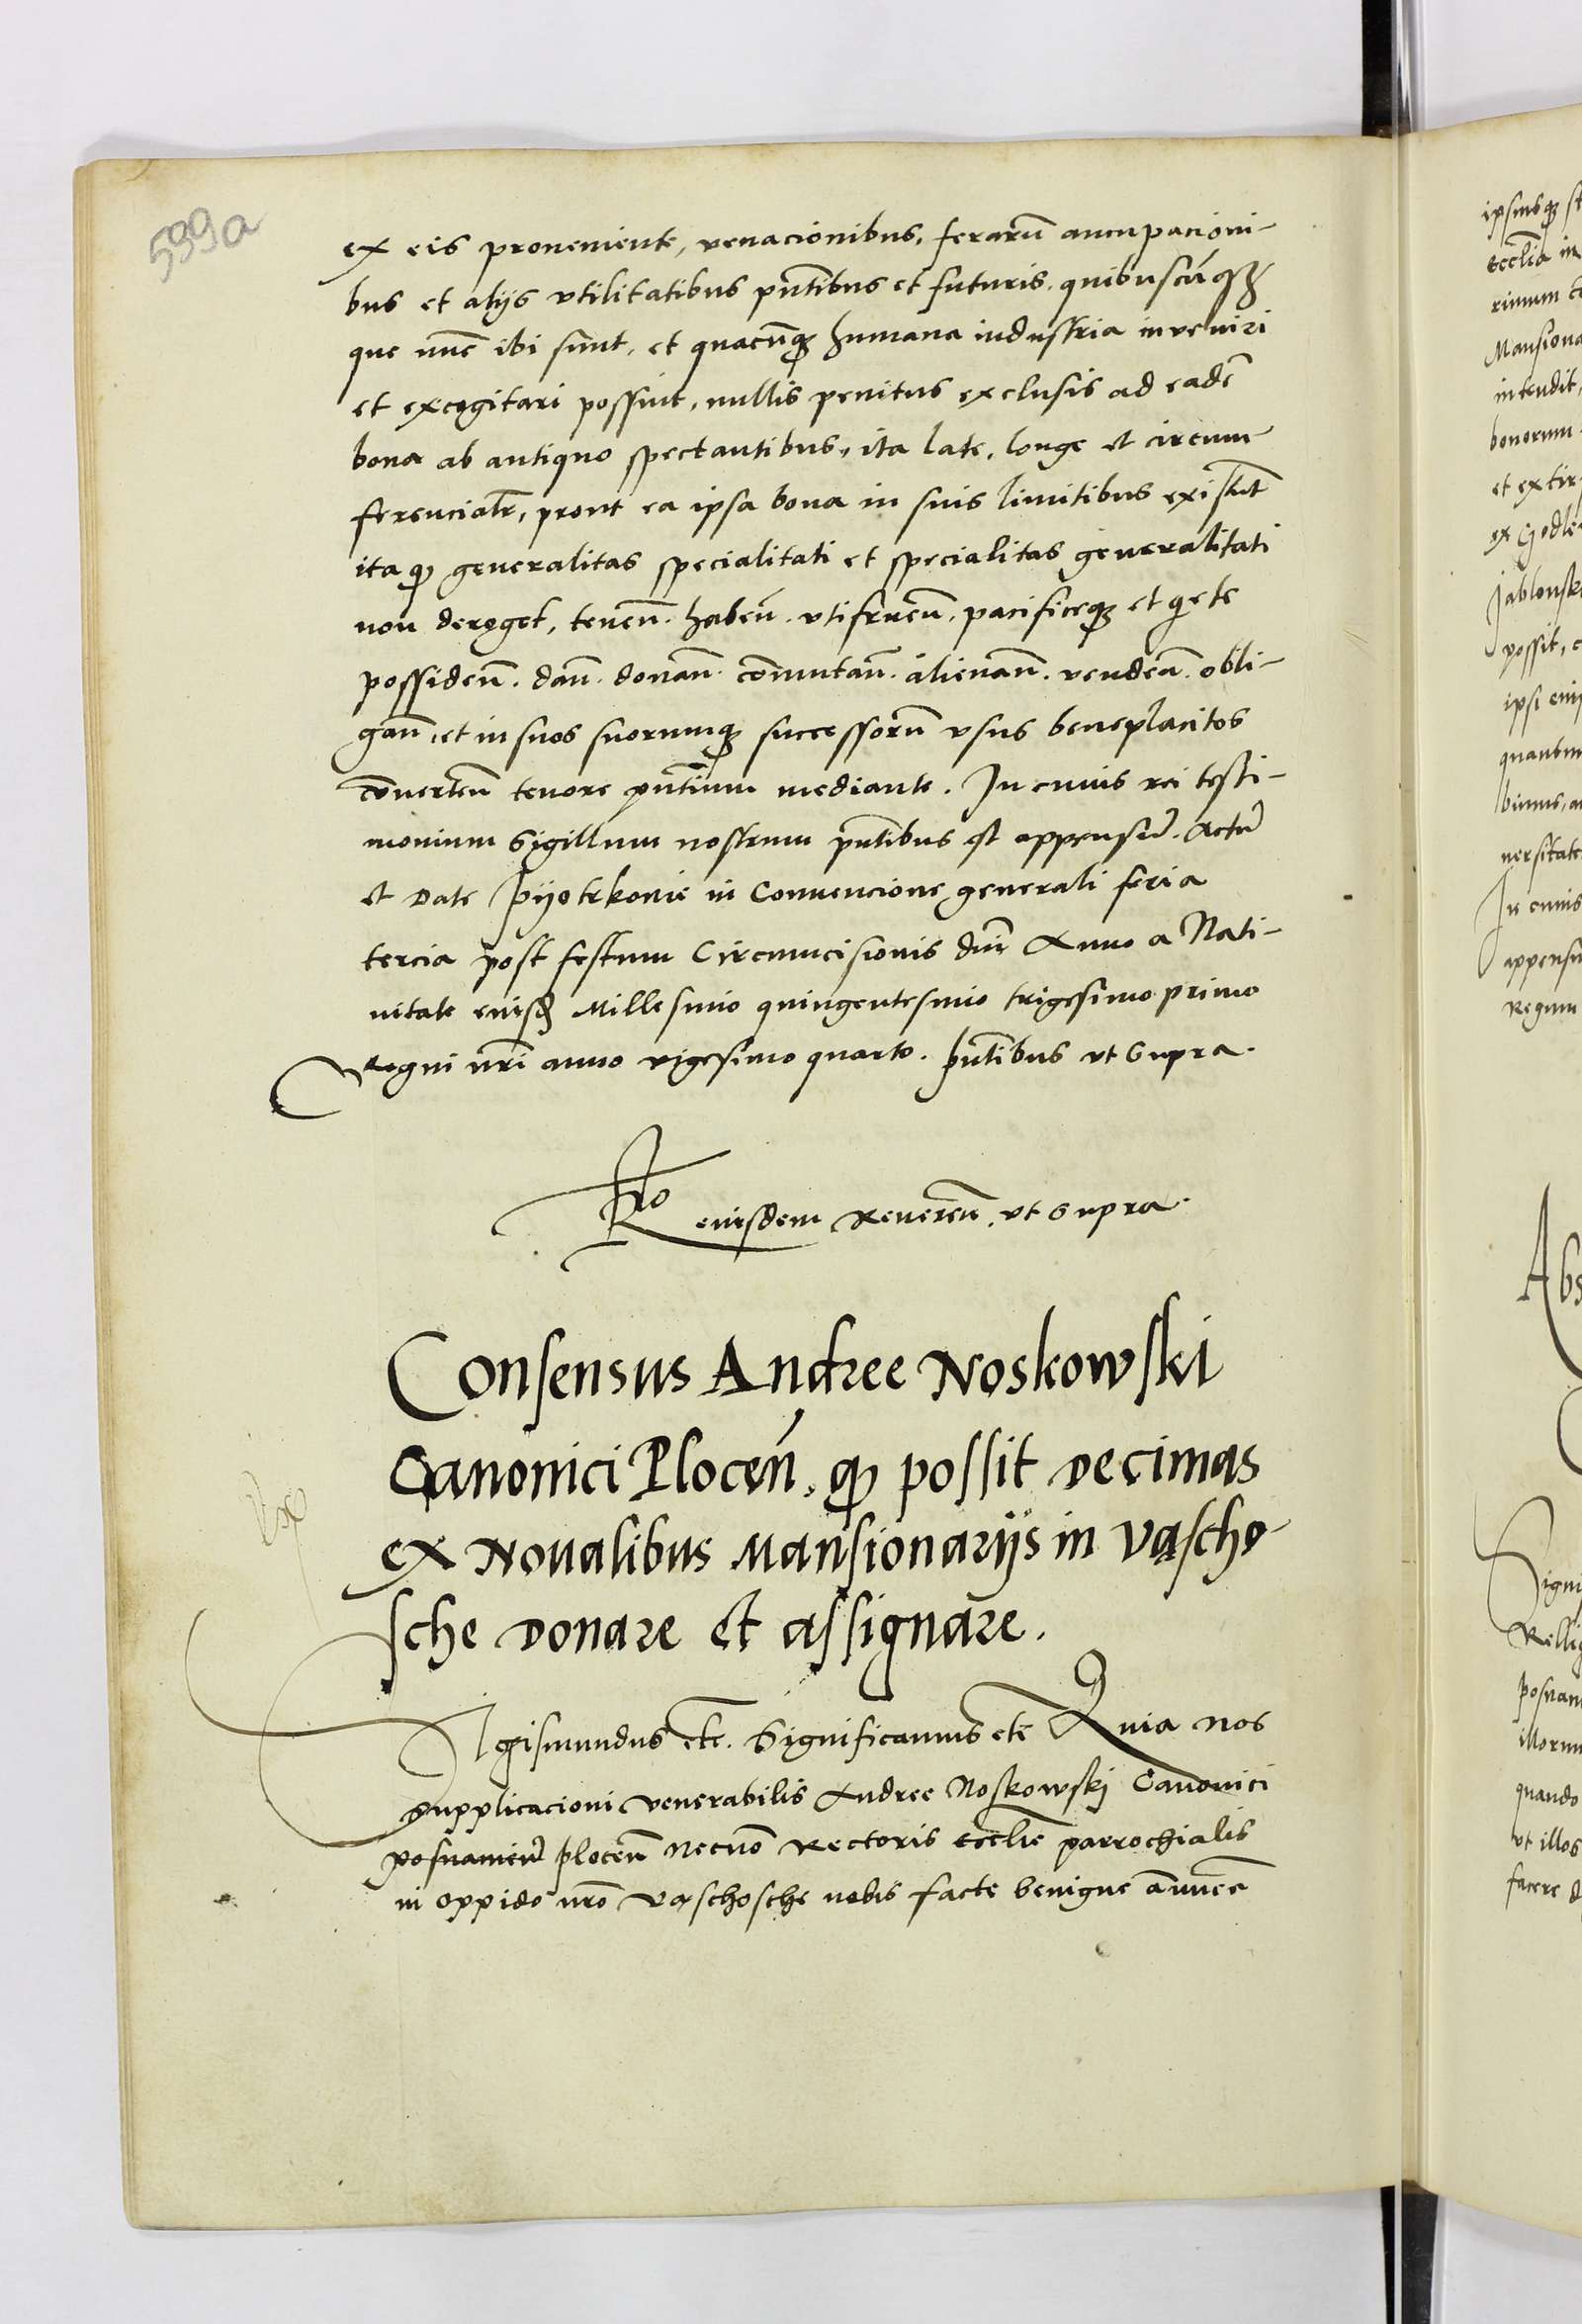 599a
ex eis proueniente, venacionibus, ferarū aucupacioni-
bus et alijs vtilitatibus pn̄tibus et futuris quibuscūqȝ
que nūc ibi sunt, et quacūqȝ humana industria inveniri
et excogitari possint, nullis penitus exclusis ad eadē
bona ab antiquo spectantibus, ita late, longe et circum-
ferencialr̄, prout ea ipsa bona in suis limitibus existūt
ita qȝ generalitas specialitati et specialitas generalitati
non deroget, tenen̄. haben̄. vtifruen̄. pacificeqȝ et qiete
possiden̄. dan̄. donan̄. com̄utan̄. alienan̄. venden̄. obli-
gan̄. et in suos suorumqȝ successorū vsus beneplacitos
conuerten̄ tenore pn̄tium mediante. In cuius rei testi-
monium Sigillum nostrum pn̄tibus est appensū. Actū
et Date Pyotrkouie in Conuencione generali feria
tercia post festum Circumcisionis dn̄i Anno a Nati-
uitate eiusdē Millesimo quingentesimo trigesimo primo
Regni nr̄i anno vigesimo quarto. Pn̄tibus vt Supra.
Rlō eiusdem Reueren̄. vt Supra.
Consensus Andree Noskowski
Canonici Plocen̄. qȝ possit Decimas
ex Noualibus Mansionarijs in Vascho-
sche Donare et assignare.
Sigismundus etc. Significamus etc̄ Quia nos
Supplicacioni venerabilis Andree Noskowskj Canonici
posnanien̄ plocen̄ Necnō Rectoris ecclīe parrochialis
in oppido nr̄o Vaschosche nobis facte benigne annuen̄
ipsiusqȝ
eccliā in
rimum
Mansiona
intendit,
bonorum
et extir
possit,
quando
vt illos
facere
In cuius
Regum
Abs